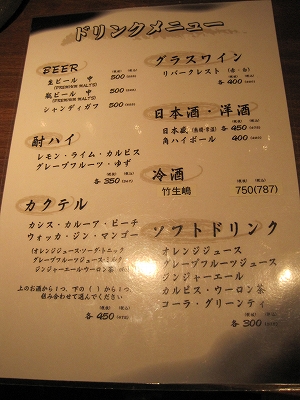 ドリンクメニュー
BEER
(税抜) (税込)
生ビール 中 500
(PREMIUM MALT'S)
瓶ビール 中 500
(PREMIUM MALT'S)
シャンディガフ 500
酎ハイ
レモン・ライム・カルピス
グレープフルーツ・ゆず
各 350
カクテル
カシス・カルーア・ピーチ
ウォッカ・ジン・マンゴー
(オレンジジュース・ソーダ・トニック
グレープフルーツジュース・ミルク
ジンジャーエール・ウーロン茶
上のお酒から1つ、下の( )から1つ、
組み合わせて選んでください
各 450
グラスワイン
リバークレスト(赤・白)
各 400
日本酒・洋酒
日本盛 各 450
角ハイボール 400
冷酒
竹生嶋 750(787)
ソフトドリンク
オレンジジュース
グレープフルーツジュース
ジンジャーエール
カルピス・ウーロン茶
コーラ・グリーンティ
各 300